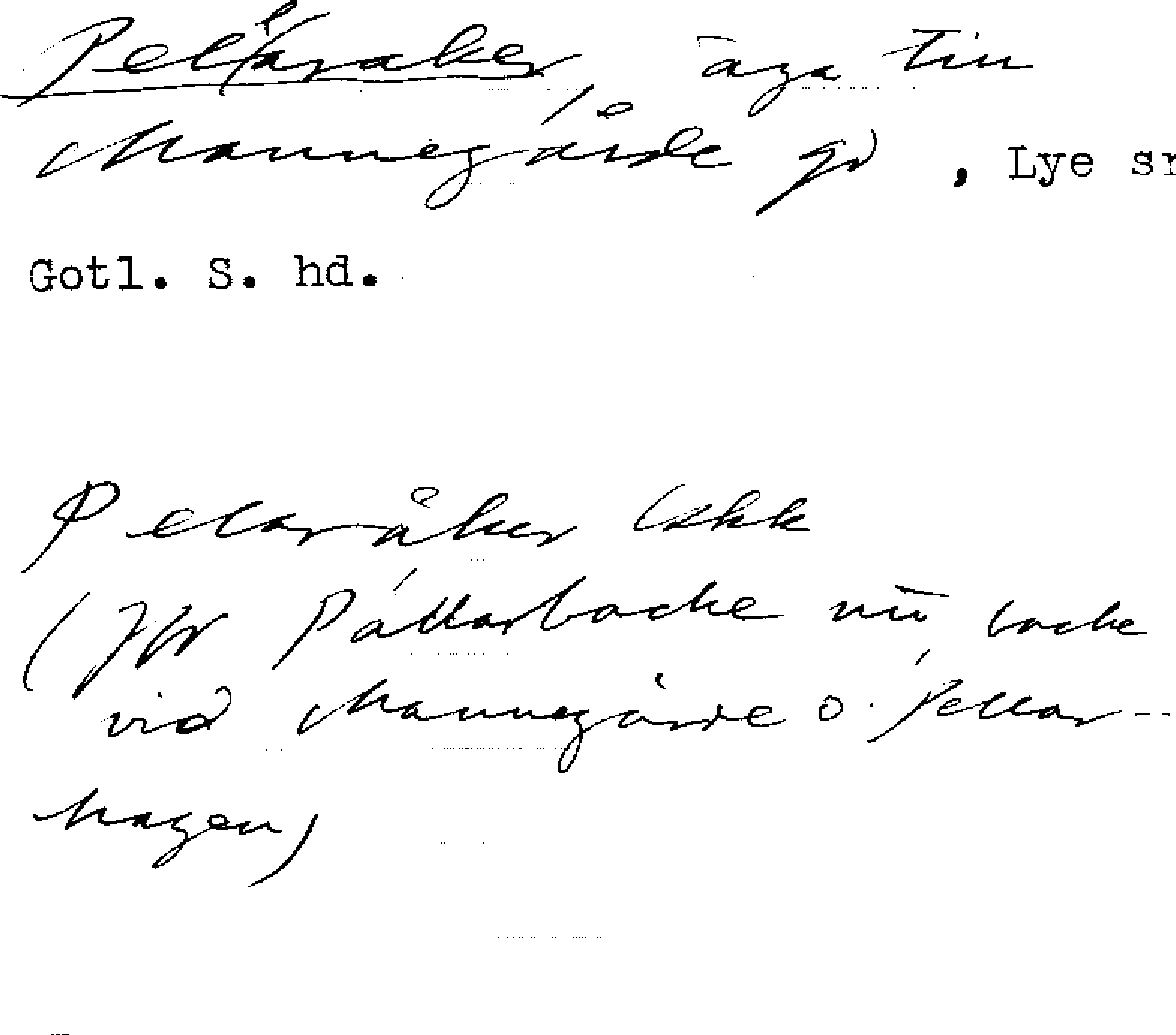 Pellaraker, äga till
Mannegårde gd , Lye sn
Gotl. S. hd.
Pellaråker
(Jfr Pällarbacke nu, backe
vid Mannegårde o. Pellar-
hagen)